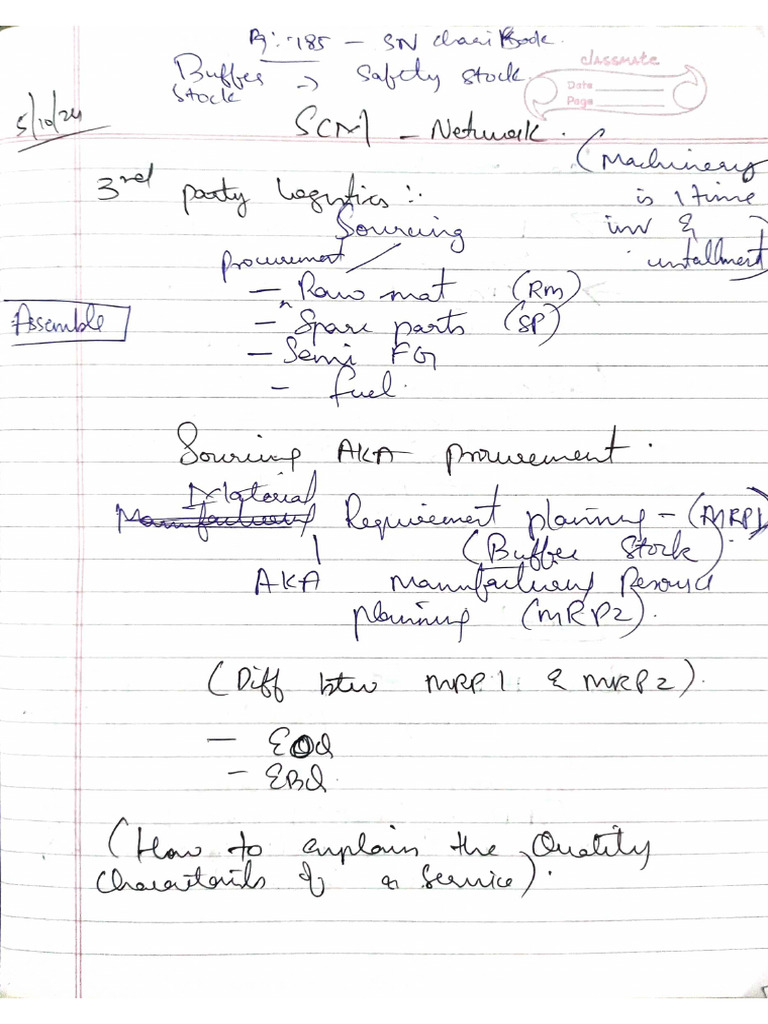 Pg :- 185 - SN Chari Book.
Buffer → Safety stock.
Stock
classmate
Date
Page
5/10/24
SCM - Network.
(Machinery
is 1 time
inv &
installment)
3rd party Logistics :-
Sourcing
procurement
- Raw mat (RM)
Assemble
- Spare parts (SP)
- Semi FG
- fuel.
Sourcing AKA procurement.
Material
Manufacturing Requirement planning - (MRP1)
(Buffer Stock).
AKA manufacturing Resource
planning (MRP2).
(Diff btw MRP1 & MRP2).
- EOQ
- EBQ.
(How to explain the Quality
of a Service).